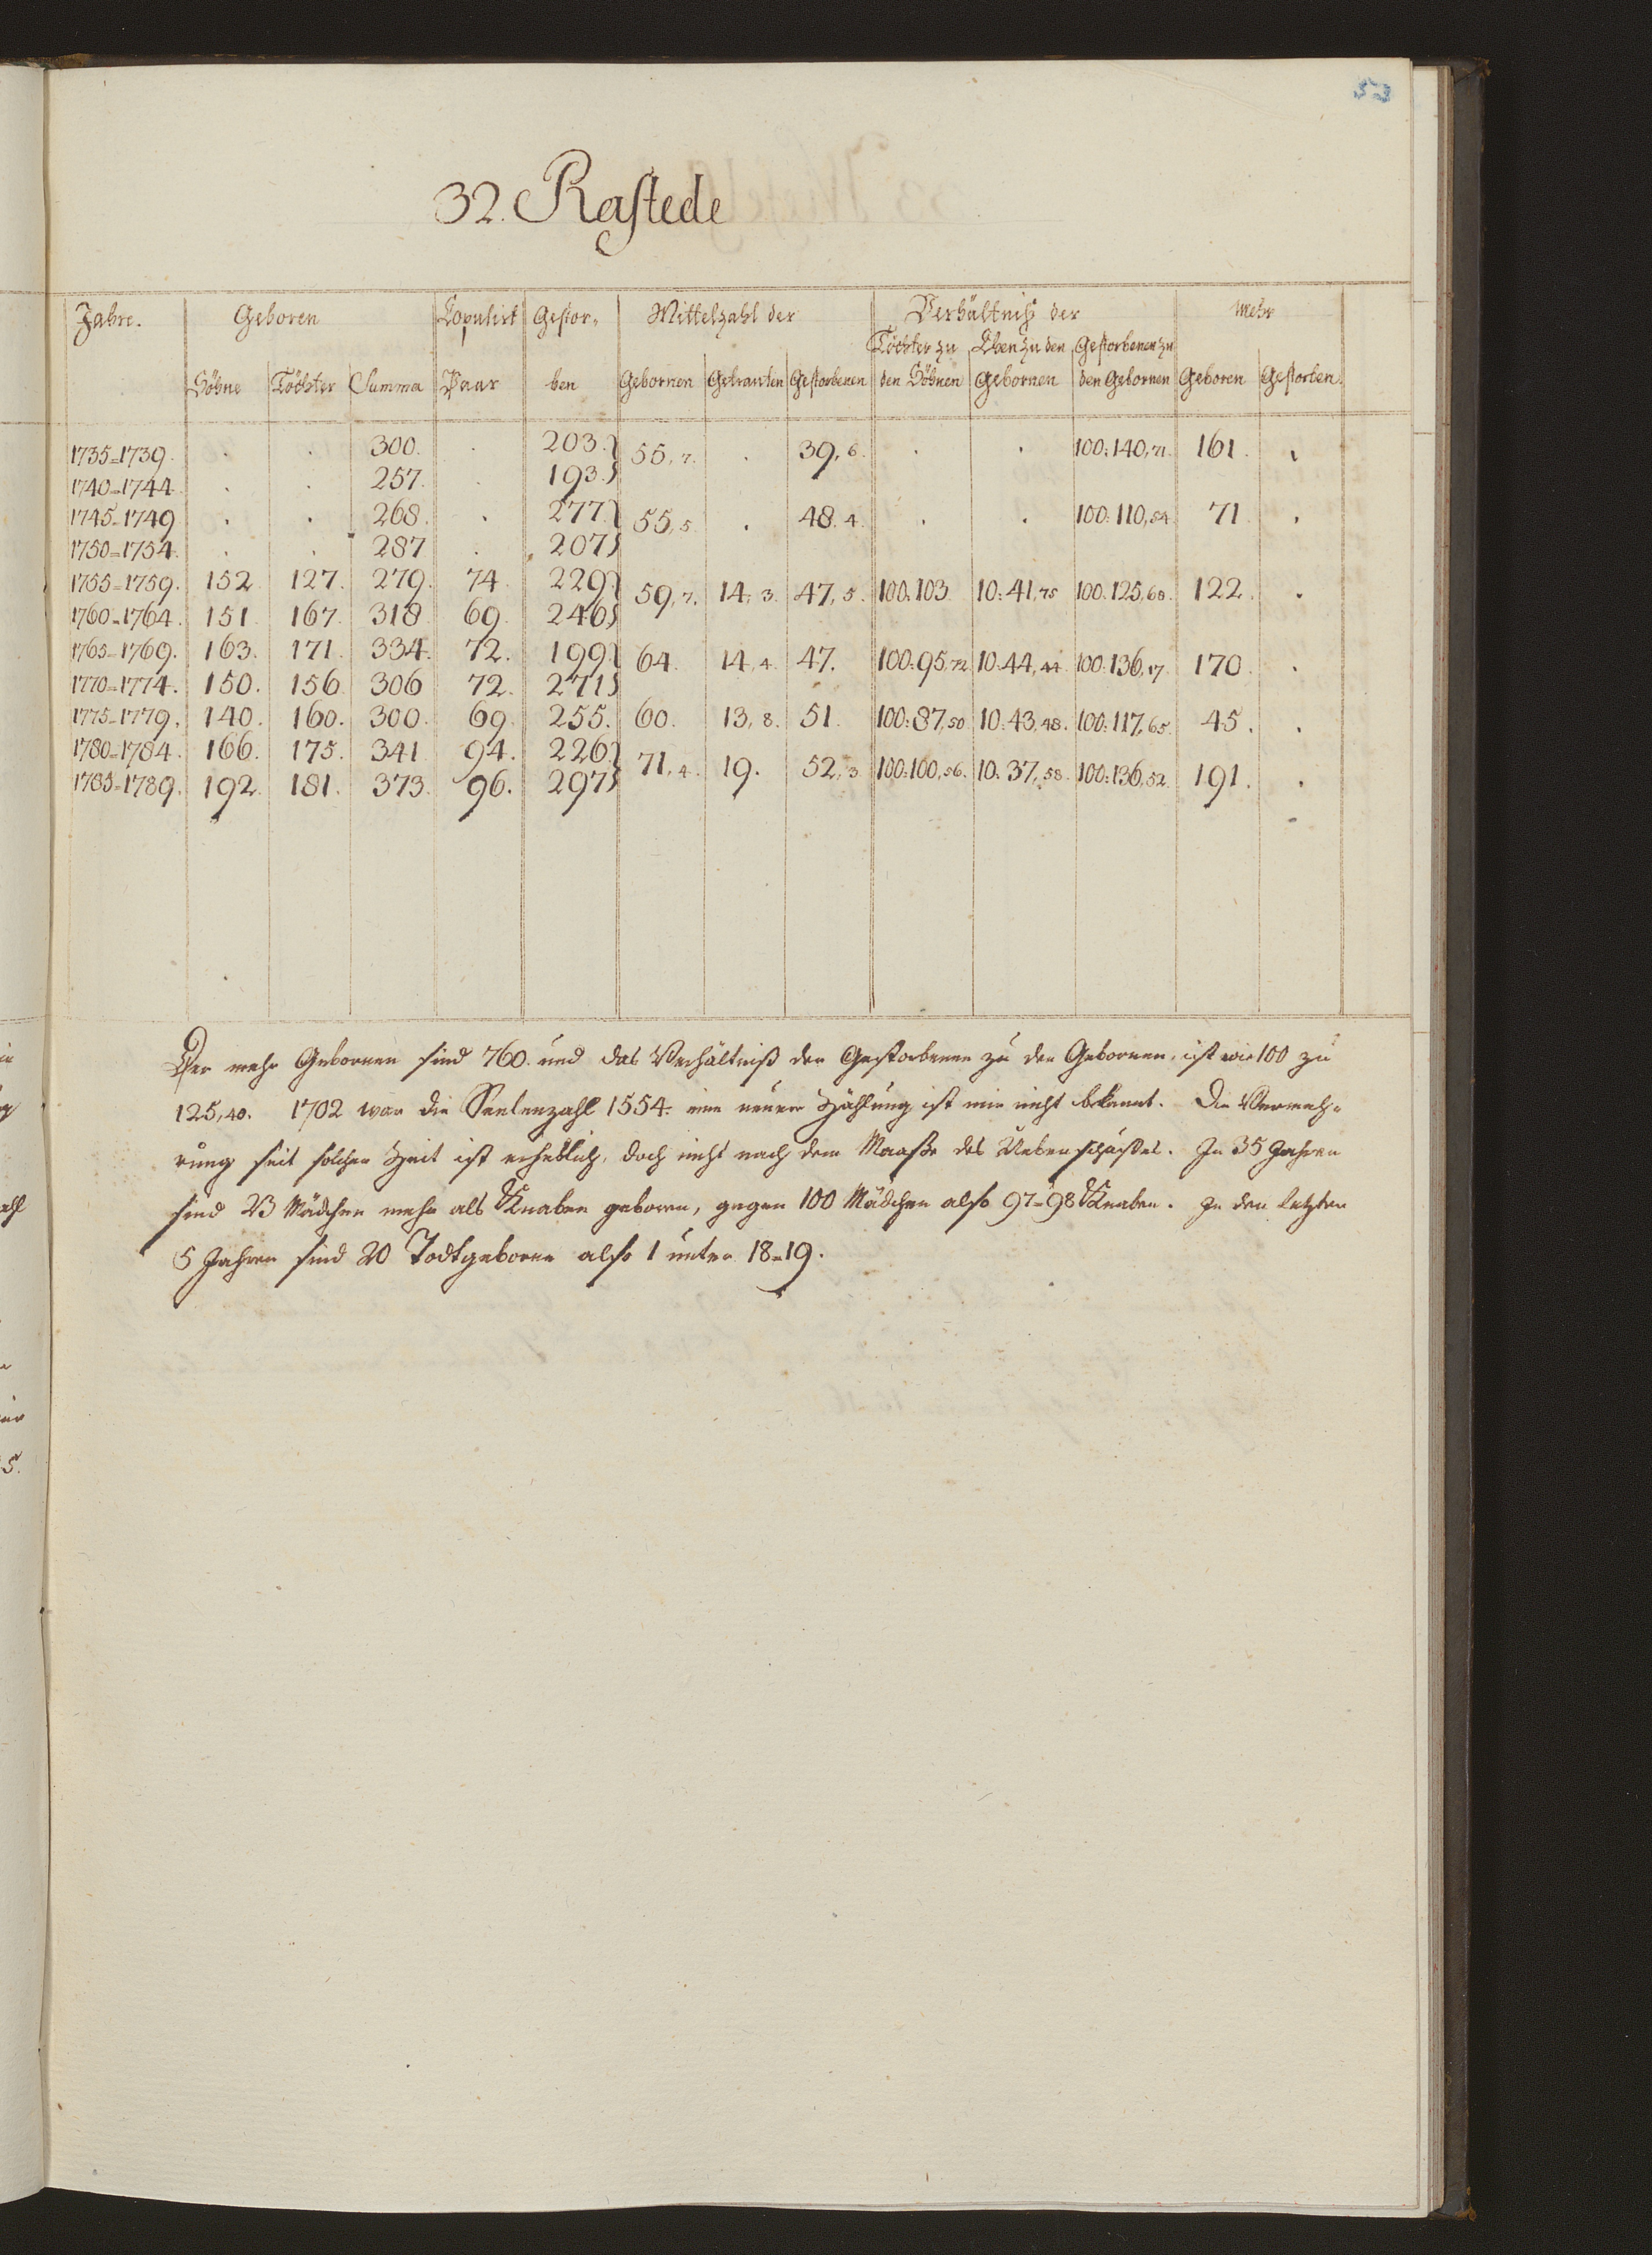 53
32. Rastede
Jahre. Geboren Copulirt Gestor- Mittelzahl der Verhältniß der Mehr
Töchter zu Ehen zu den Gestorbenen zu
Söhne Töchter Summa Paar ben Gebornen Getrauten Gestorbenen den Söhnen Gebornen den Gebornen Geboren Gestorben.
1735=1739. . . 300. . 203. 55,7. . 39,6. . . 100:140,71. 161. .
1740=1744. . . 257. . 193.
1745=1749 . . 268. . 277. 55,5. . 48,4. . . 100:110,54. 71. .
1750=1754. . . 287 . 207
1755=1759. 152. 127. 279. 74. 229. 59,7. 14,3. 47,5. 100:103. 10:41,75 100:125,68. 122. .
1760=1764. 151. 167. 318 69. 246
1765=1769. 163. 171. 334. 72. 199. 64. 14,4. 47. 100:95,72 10:44,44 100:136,17. 170. .
1770=1774. 150. 156. 306 72. 271
1775=1779. 140. 160. 300. 69. 255. 60. 13,8. 51. 100:87,50. 10:43,48. 100:117,65. 45. .
1780=1784. 166. 175. 341 94. 226. 71,4. 19. 52,3. 100:100,56. 10:37,58. 100:136,52. 191. .
1785=1789. 192. 181. 373. 96. 297
Der mehr Gebornen sind 760. und das Verhältniß der Gestorbenen zu den Gebornen, ist wie 100 zu
125,40. 1702 war die Seelenzahl 1554. eine neuere Zählung ist mir nicht bekannt. Die Vermeh-
rung seit solcher Zeit ist erheblich, doch nicht nach dem Maaße des Ueberschußes. In 35 Jahren
sind 23 Mädchen mehr als Knaben geboren, gegen 100 Mädchen also 97=98 Knaben. In den letzten
5 Jahren sind 20 Todtgeborne also 1 unter 18=19.